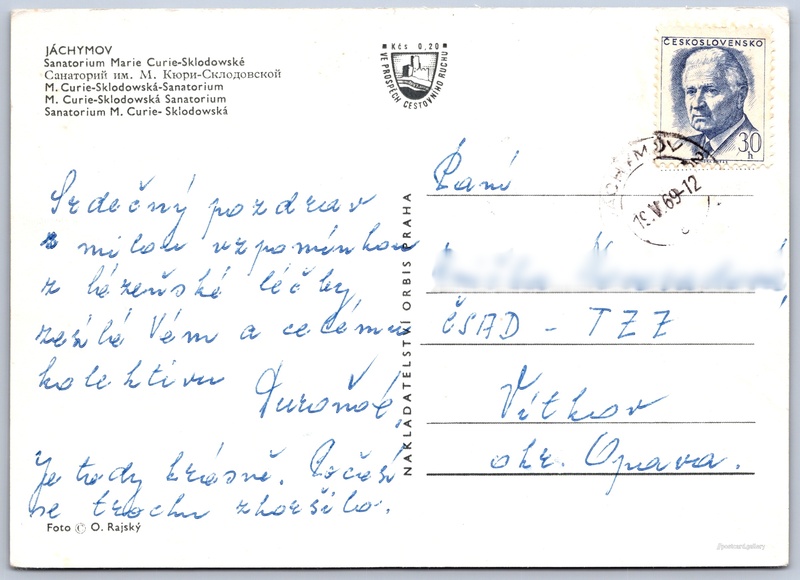 JÁCHYMOV
Sanatorium Marie Curie-Sklodowské
Санаторий им. М. Кюри-Склодовской
M. Curie-Sklodowská-Sanatorium
M. Curie-Sklodowská Sanatorium
Sanatorium M. Curie- Sklodowská
Kčs 0,20
VE PROSPĚCH CESTOVNÍHO RUCHU
ČESKOSLOVENSKO
30
h
JÁCHYMOV
19.V.69-12
Srdečný pozdrav
s milou vzpomínkou
z lázeňské léčby
zesílá Vám a celému
kolektivu
Je tady krásně. Počasí
se trochu zhoršilo.
Foto © O. Rajský
NAKLADATELSTVÍ ORBIS PRAHA
Paní
ČSAD - TZZ
Vítkov
okr. Opava.
//postcard.gallery